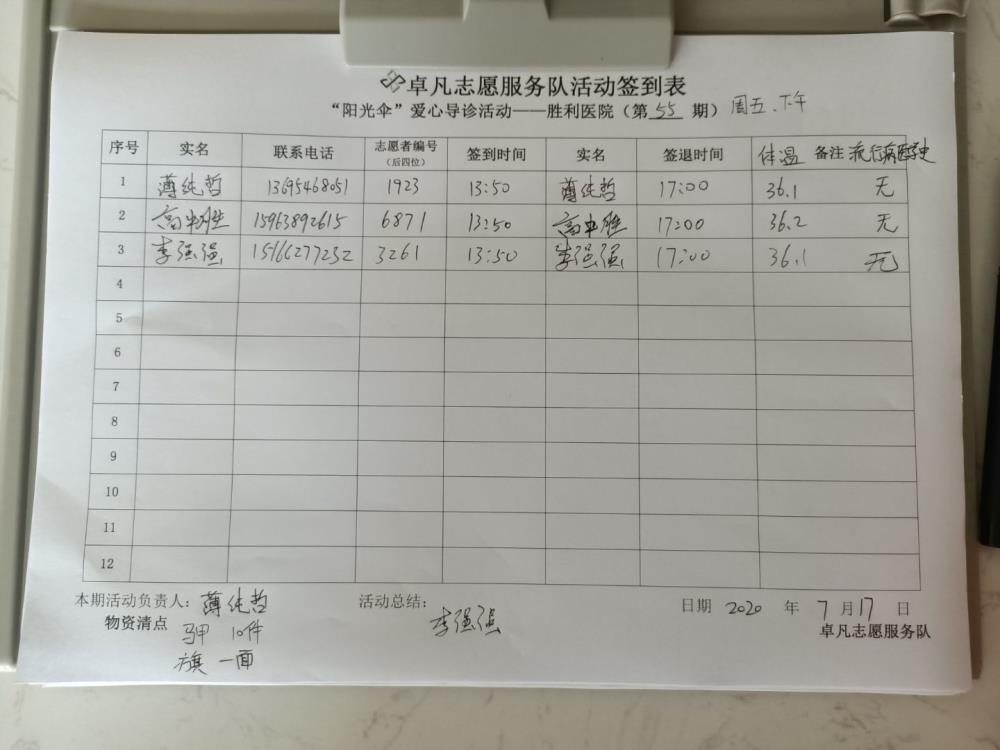 卓凡志愿服务队活动签到表
“阳光伞”爱心导诊活动——胜利医院（第 55 期） 周五.下午
序号 实名 联系电话 志愿者编号（后四位） 签到时间 实名 签退时间 体温 备注 流行病医学史
1 薄纯哲 13695468051 1923 13:50 薄纯哲 17:00 36.1 无
2 15963892615 6871 13:50 17:00 36.2 无
3 李强强 15966277232 3261 13:50 李强强 17:00 36.1 无
4
5
6
7
8
9
10
11
12
本期活动负责人： 薄纯哲 活动总结： 李强强 日期 2020 年 7 月 17 日
物资清点 马甲 10件 卓凡志愿服务队
旗 一面